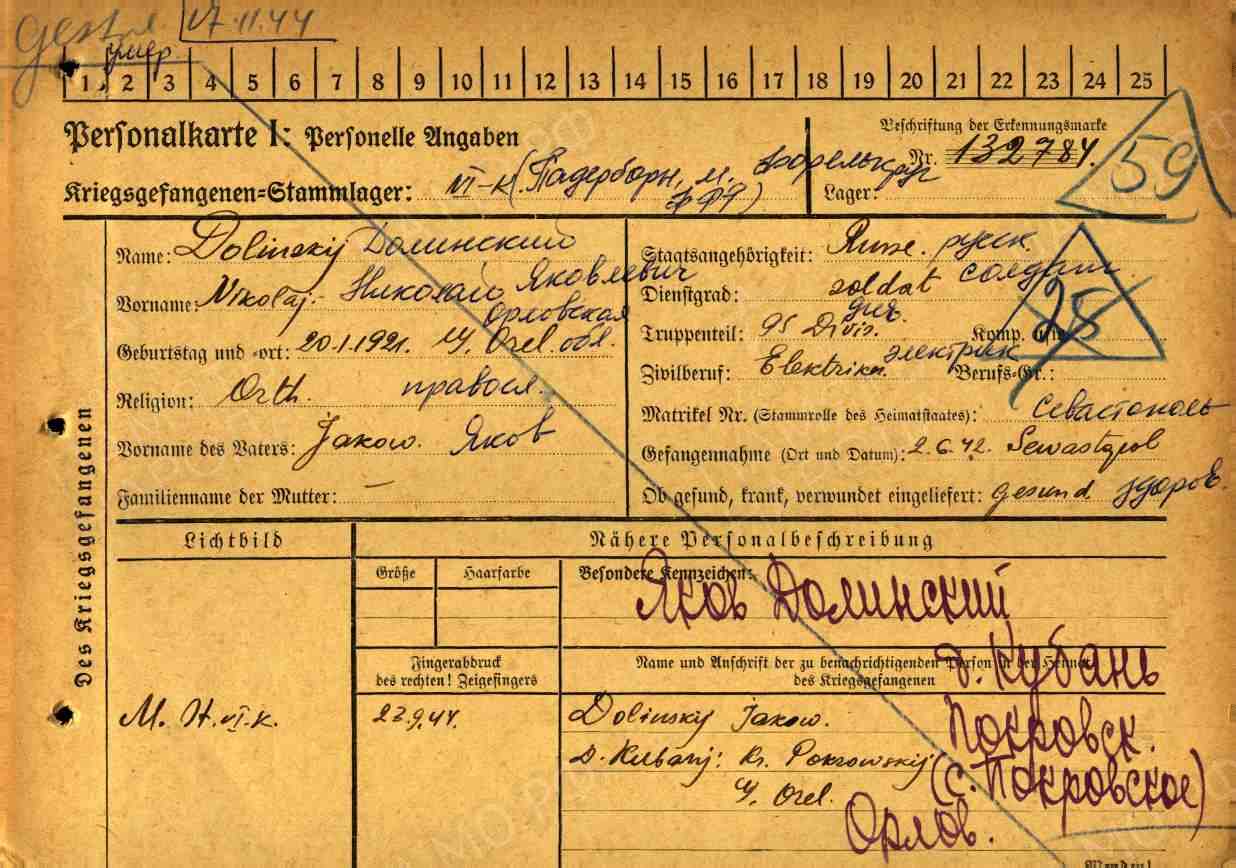 17.11.44
умер.
1 2 3 4 5 6 7 8 9 10 11 12 13 14 15 16 17 18 19 20 21 22 23 24 25
Personalkarte I: Personelle Angaben
Beschriftung der Erkennungsmarke
Nr. 132784.
59
Kriegsgefangenen-Stammlager: VI-K (Падерборн,
Lager:
Des Kriegsgefangenen
Name: Dolinskij Долинский
Vorname: Nikolaj. Николай Яковлевич
Орловская
Geburtstag und -ort: 20.1.1921. Orel. обл.
Religion: Orth. правосл.
Vorname des Vaters: Jakow. Яков
Familienname der Mutter: —
Staatsangehörigkeit: Russe. русск.
Dienstgrad: soldat солдат
див.
Truppenteil: 95 Divis. Komp. usw.
25
Zivilberuf: Elektriker. электрик Berufs-Gr.:
Matrikel Nr. (Stammrolle des Heimatstaates): Севастополь
Gefangennahme (Ort und Datum): 2.6.42. Sewastopol
Ob gesund, krank, verwundet eingeliefert: gesund здоров.
Lichtbild
Nähere Personalbeschreibung
Größe
Haarfarbe
Besondere Kennzeichen:
Яков Долинский
Fingerabdruck
des rechten! Zeigefingers
Name und Anschrift der zu benachrichtigenden Person in der Heimat
des Kriegsgefangenen
д. Кубань
M. St. VI. K.
23.9.44.
Dolinskij Jakow.
Покровск.
D. Kubanj: Kr. Pokrowskij
(с. Покровское)
Orel.
Орлов.